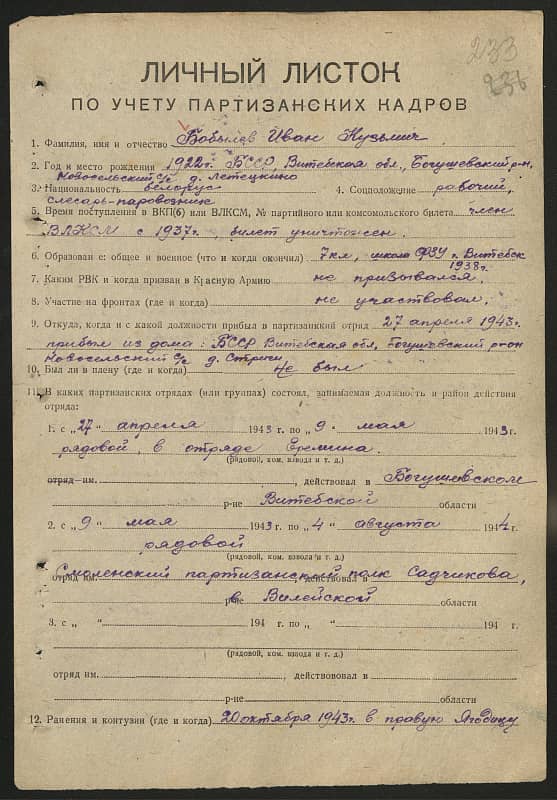 233
236
ЛИЧНЫЙ ЛИСТОК
ПО УЧЕТУ ПАРТИЗАНСКИХ КАДРОВ
1. Фамилия, имя и отчество Бобылев Иван Кузьмич
2. Год и место рождения 1922г. БССР, Витебская обл., Богушевский р-н,
Новосельский с/с д. Летецкино
3. Национальность белорус 4. Соцположение рабочий,
слесарь-паровозник
5. Время поступления в ВКП(б) или ВЛКСМ, № партийного или комсомольского билета член
ВЛКСМ с 1937г., билет уничтожен.
6. Образован е: общее и военное (что и когда окончил) 7 кл, школа ФЗУ г. Витебск
1938г.
7. Каким РВК и когда призван в Красную Армию не призывался.
8. Участие на фронтах (где и когда) не участвовал.
9. Откуда, когда и с какой должности прибыл в партизанский отряд 27 апреля 1943г.
прибыл из дома: БССР Витебская обл, Богушевский р-он
Новосельский с/с д. Стриги
10. Был ли в плену (где и когда) не был
11. В каких партизанских отрядах (или группах) состоял, занимаемая должность и район действия
отряда:
1. с „27“ апреля 1943 г. по „9“ мая 1943г.
рядовой, в отряде Еремина.
(рядовой, ком. взвода и т. д.)
отряд им. , действовал в Богушевском
р-не Витебской области
2. с „9“ мая 1943 г. по „4“ августа 1944г.
рядовой
(рядовой, ком. взвода и т. д.)
отряд им. Смоленский партизанский полк Садчикова, действовал в
р-не в Вилейской области
3. с „ “ 194 г. по „ “ 194 г.
(рядовой, ком. взвода и т. д.)
отряд им. , действовавал в
р-не области
12. Ранения и контузии (где и когда) 20 октября 1943г. в правую ягодицу